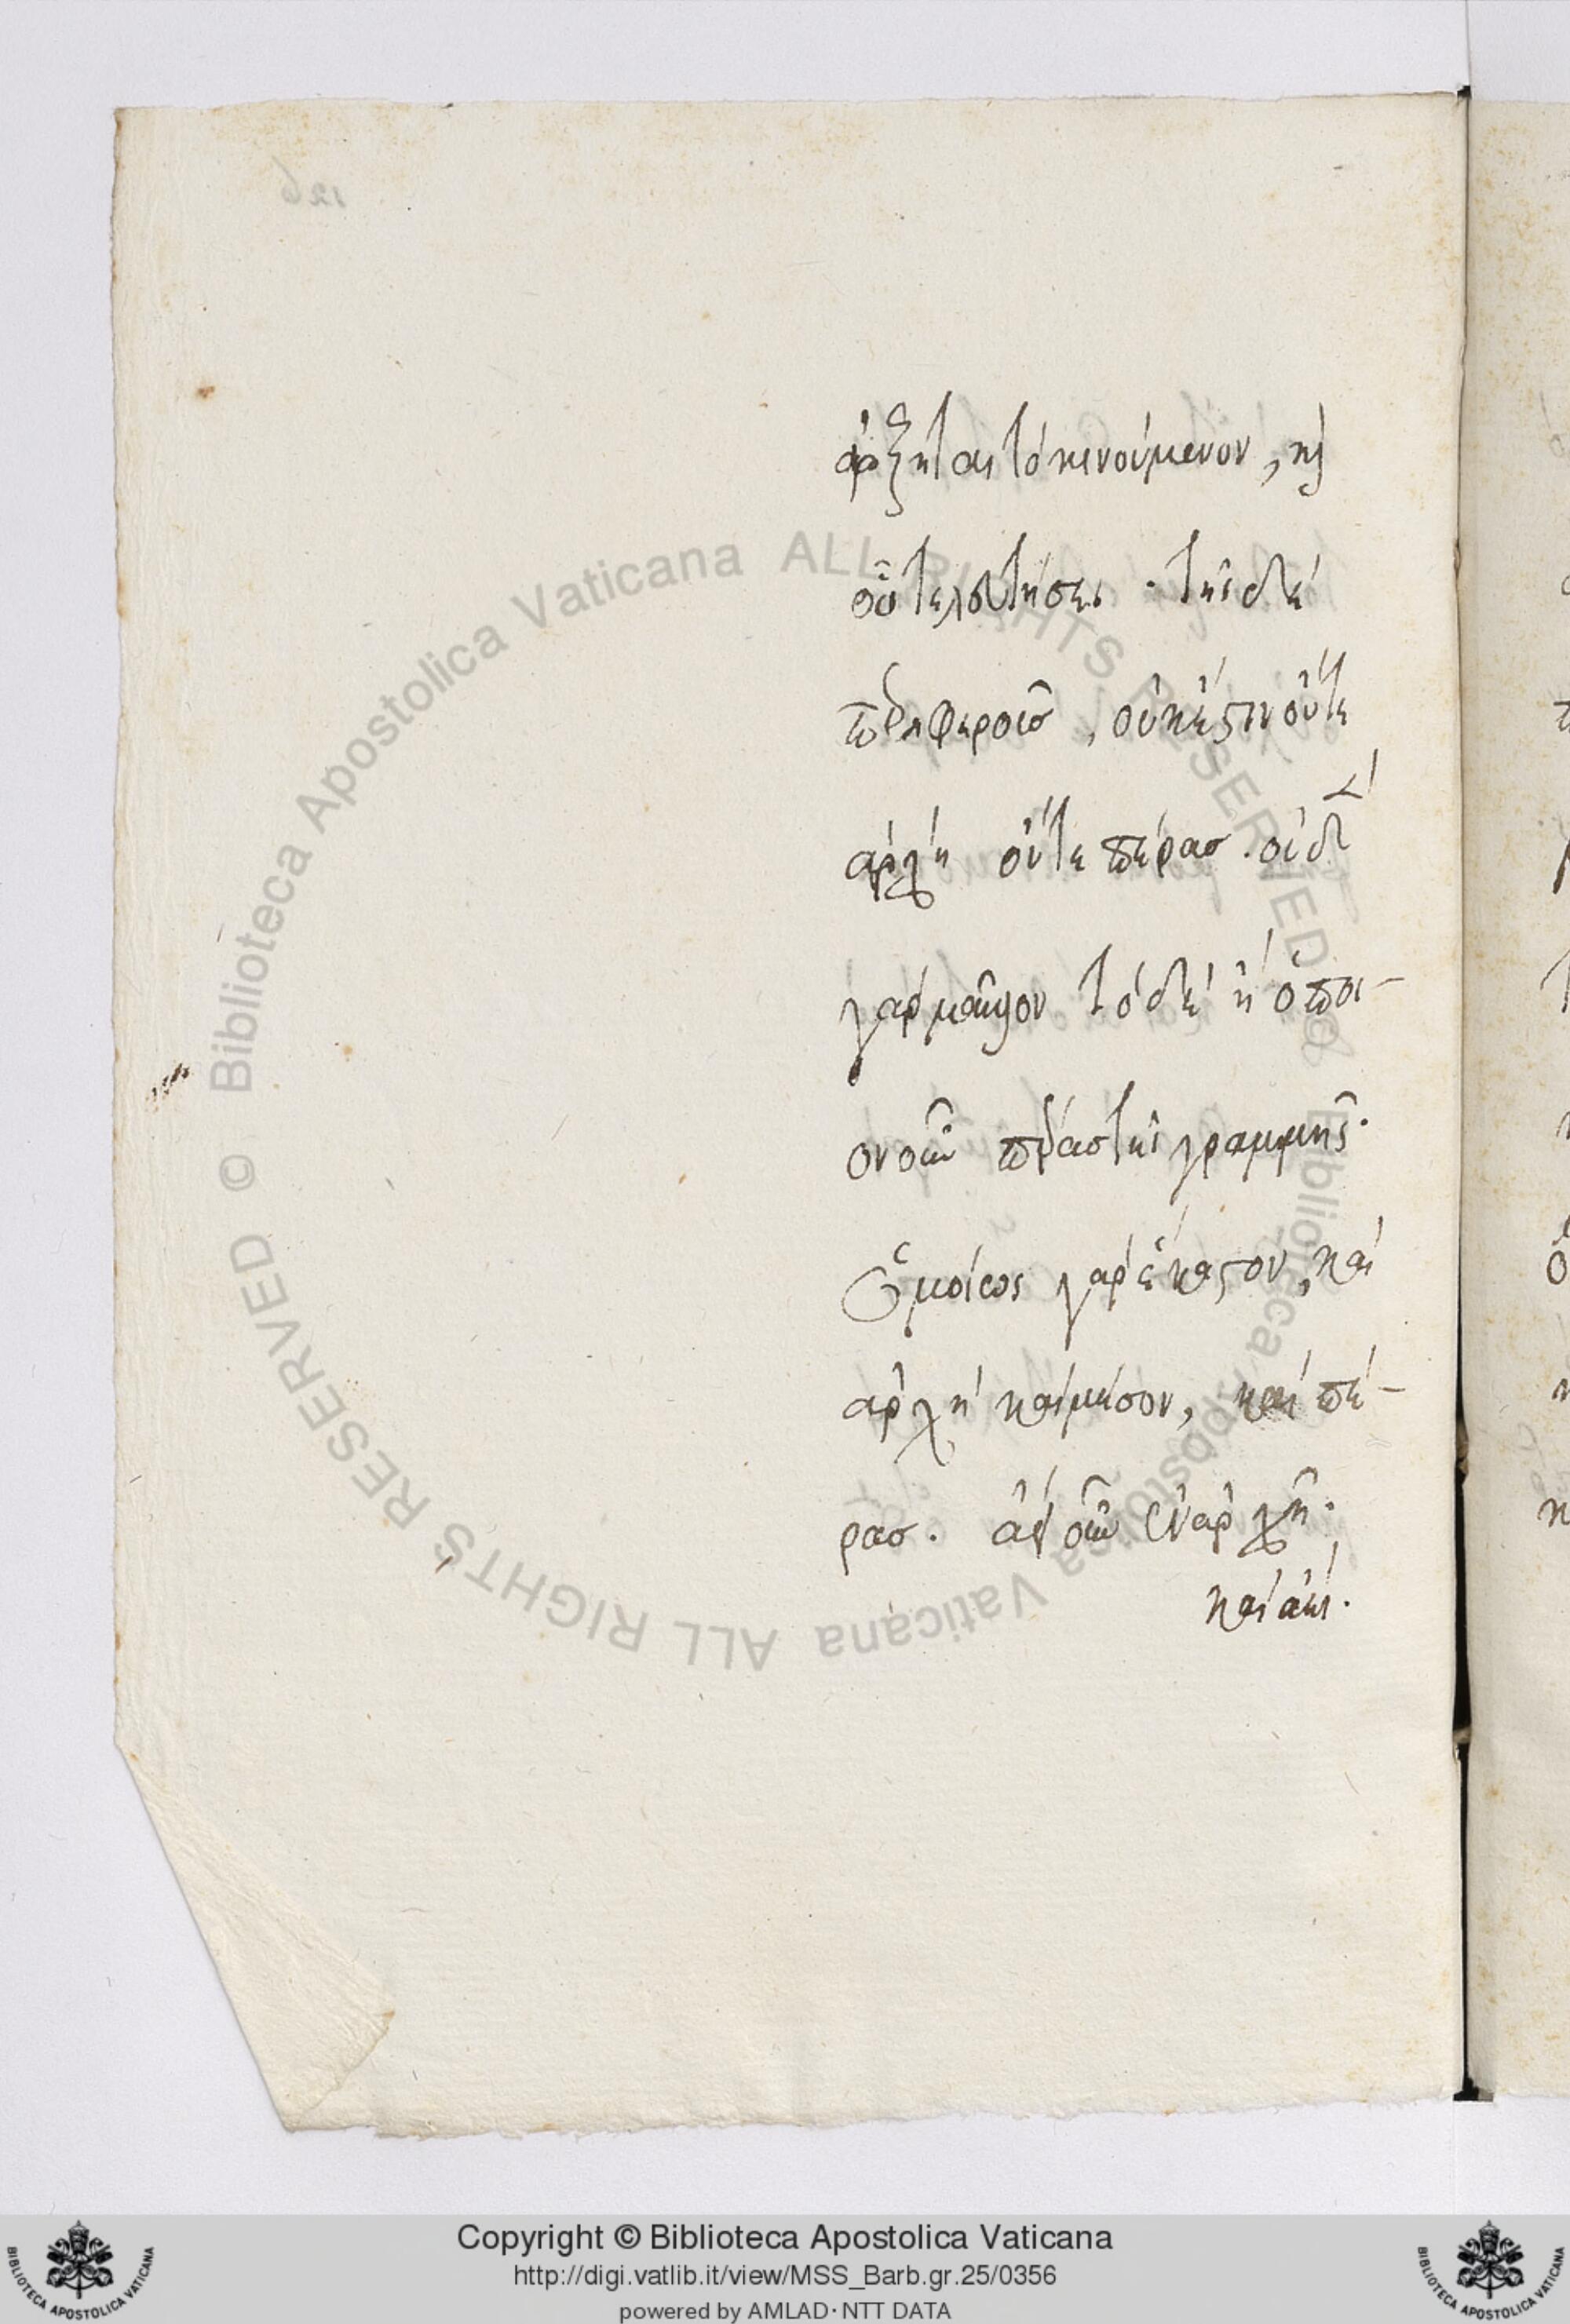 ἄρξηται τὸ κινούμενον, καὶ
οὗ τελευτήσει · τῆς δὲ
περιφεροῦς, οὐκ ἔστιν οὔτε
ἀρχὴ οὔτε πέρας. οὐδὲν
γὰρ μᾶλλον τόδε ἢ ὁποι-
ονοῦν πέρας τῆς γραμμῆς.
Ὁμοίως γὰρ ἕκαστον, καὶ
ἀρχὴ καὶ μέσον, καὶ πέ-
ρας. ἀεὶ οὖν ἐν ἀρχῇ.
καὶ ἀεὶ.
© Biblioteca Apostolica Vaticana ALL RIGHTS RESERVED © Biblioteca Apostolica Vaticana ALL RIGHTS RESERVED
Copyright © Biblioteca Apostolica Vaticana
http://digi.vatlib.it/view/MSS_Barb.gr.25/0356
powered by AMLAD · NTT DATA
BIBLIOTECA APOSTOLICA VATICANA
BIBLIOTECA APOSTOLICA VATICANA